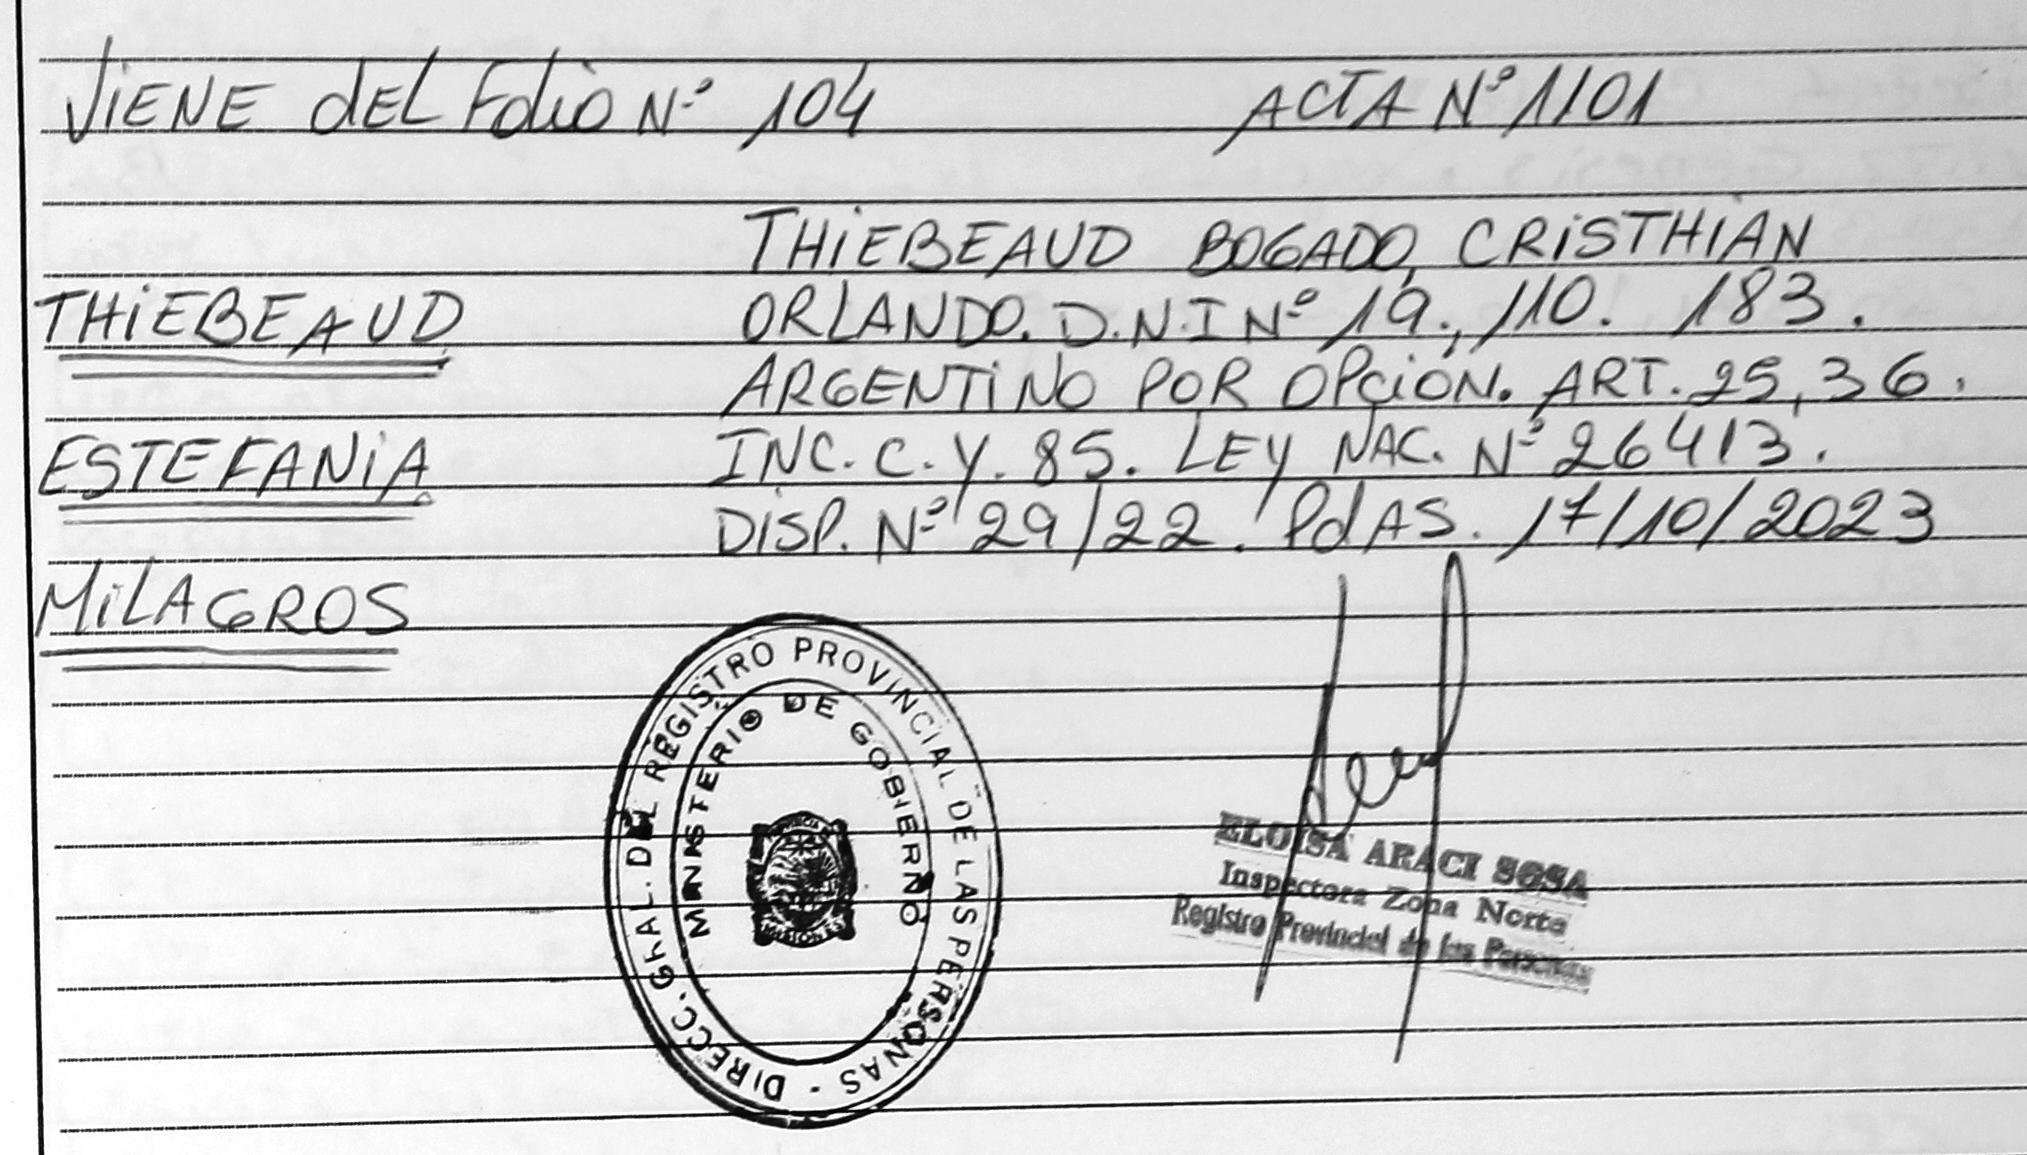 ViENE dEL Folio N.º 104 ACTA Nº 1101
THiEBEAUD BOGADO, CRiSTHiAN
THiEBEAUD
ORLANDO. D.N.I Nº 19.,110. 183.
ARGENTiNO POR OPCIÓN. ART. 25, 36.
ESTEFANiA
INC. C. Y. 85. LEY NAC. Nº 26413.
DISP. Nº 29/22. PdAS. 17/10/2023
MiLAGROS
DIRECC. GRAL. DEL REGISTRO PROVINCIAL DE LAS PERSONAS -
MINISTERIO DE GOBIERNO
MISIONES
ELOISA ARACI SOSA
Inspectora Zona Norte
Registro Provincial de las Personas